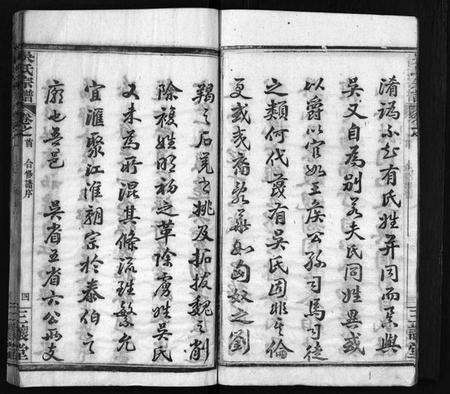 淆訛不知有氏姓并同而系與
吳又自為別若夫氏同姓異或
以爵以官如王侯公孫司馬司徒
之類何代蔑有吳氏固非其倫
更或夷裔亂華如匈奴之劉
羯之石氐之姚及拓拔魏之制
除複姓明初之革除虜姓吳氏
又未為所混其條流雖繁允
宜滙聚江淮朝宗於泰伯之
廟也吾邑 吳省五省六公兩支
吳氏宗譜
卷之首 合修譜序
四 三讓堂